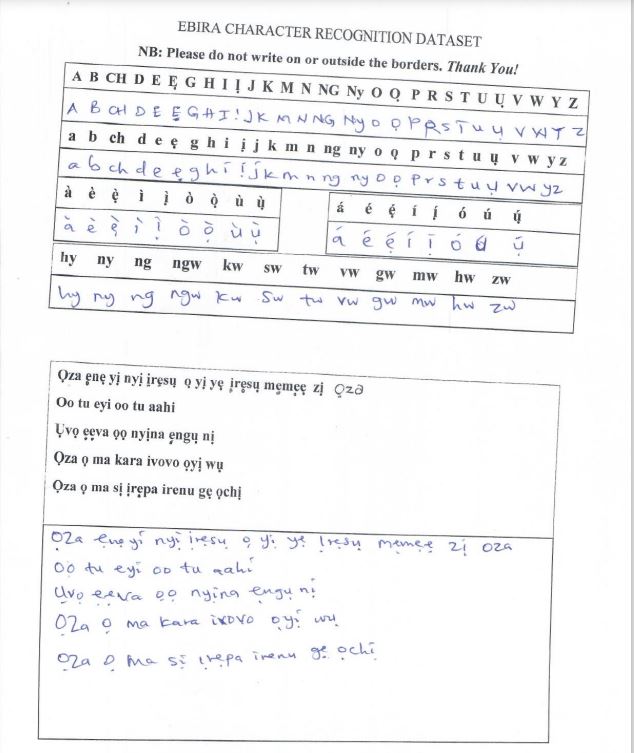 EBIRA CHARACTER RECOGNITION DATASET
NB: Please do not write on or outside the borders. Thank You!
A B CH D E Ẹ G H I Ị J K M N NG Ny O Ọ P R S T U Ụ V W Y Z
A B CH D E Ẹ G H I Ị J K M N NG Ny O Ọ P R S T U Ụ V W Y Z
a b ch d e ẹ g h i ị j k m n ng ny o ọ p r s t u ụ v w y z
a b ch d e ẹ g h i ị j k m n ng ny o ọ p r s t u ụ v w y z
à è ẹ̀ ì ị̀ ò ọ̀ ù ụ̀ á é ẹ́ í ị́ ó ú ụ́
à è ẹ̀ ì ị̀ ò ọ̀ ù ụ̀ á é ẹ́ í ị́ ó ụ́
hy ny ng ngw kw sw tw vw gw mw hw zw
hy ny ng ngw kw sw tw vw gw mw hw zw
Ọza ẹnẹ yị nyị ịrẹsụ ọ yị yẹ ịrẹsụ mẹmẹẹ zị ọza
Oo tu eyi oo tu aahi
Ụvọ ẹẹva ọọ nyịna ẹngụ nị
Ọza ọ ma kara ivovo ọyị wụ
Ọza ọ ma sị ịrẹpa irenu gẹ ọchị
Ọza ẹnẹ yị nyị ịrẹsụ ọ yị yẹ ịrẹsụ mẹmẹẹ zị oza
Oo tu eyi oo tu aahi
Ụvọ ẹẹva ọọ nyịna ẹngụ nị
Ọza ọ ma kara ivovo ọyị wụ
Ọza ọ ma sị ịrẹpa irenu gẹ ọchị